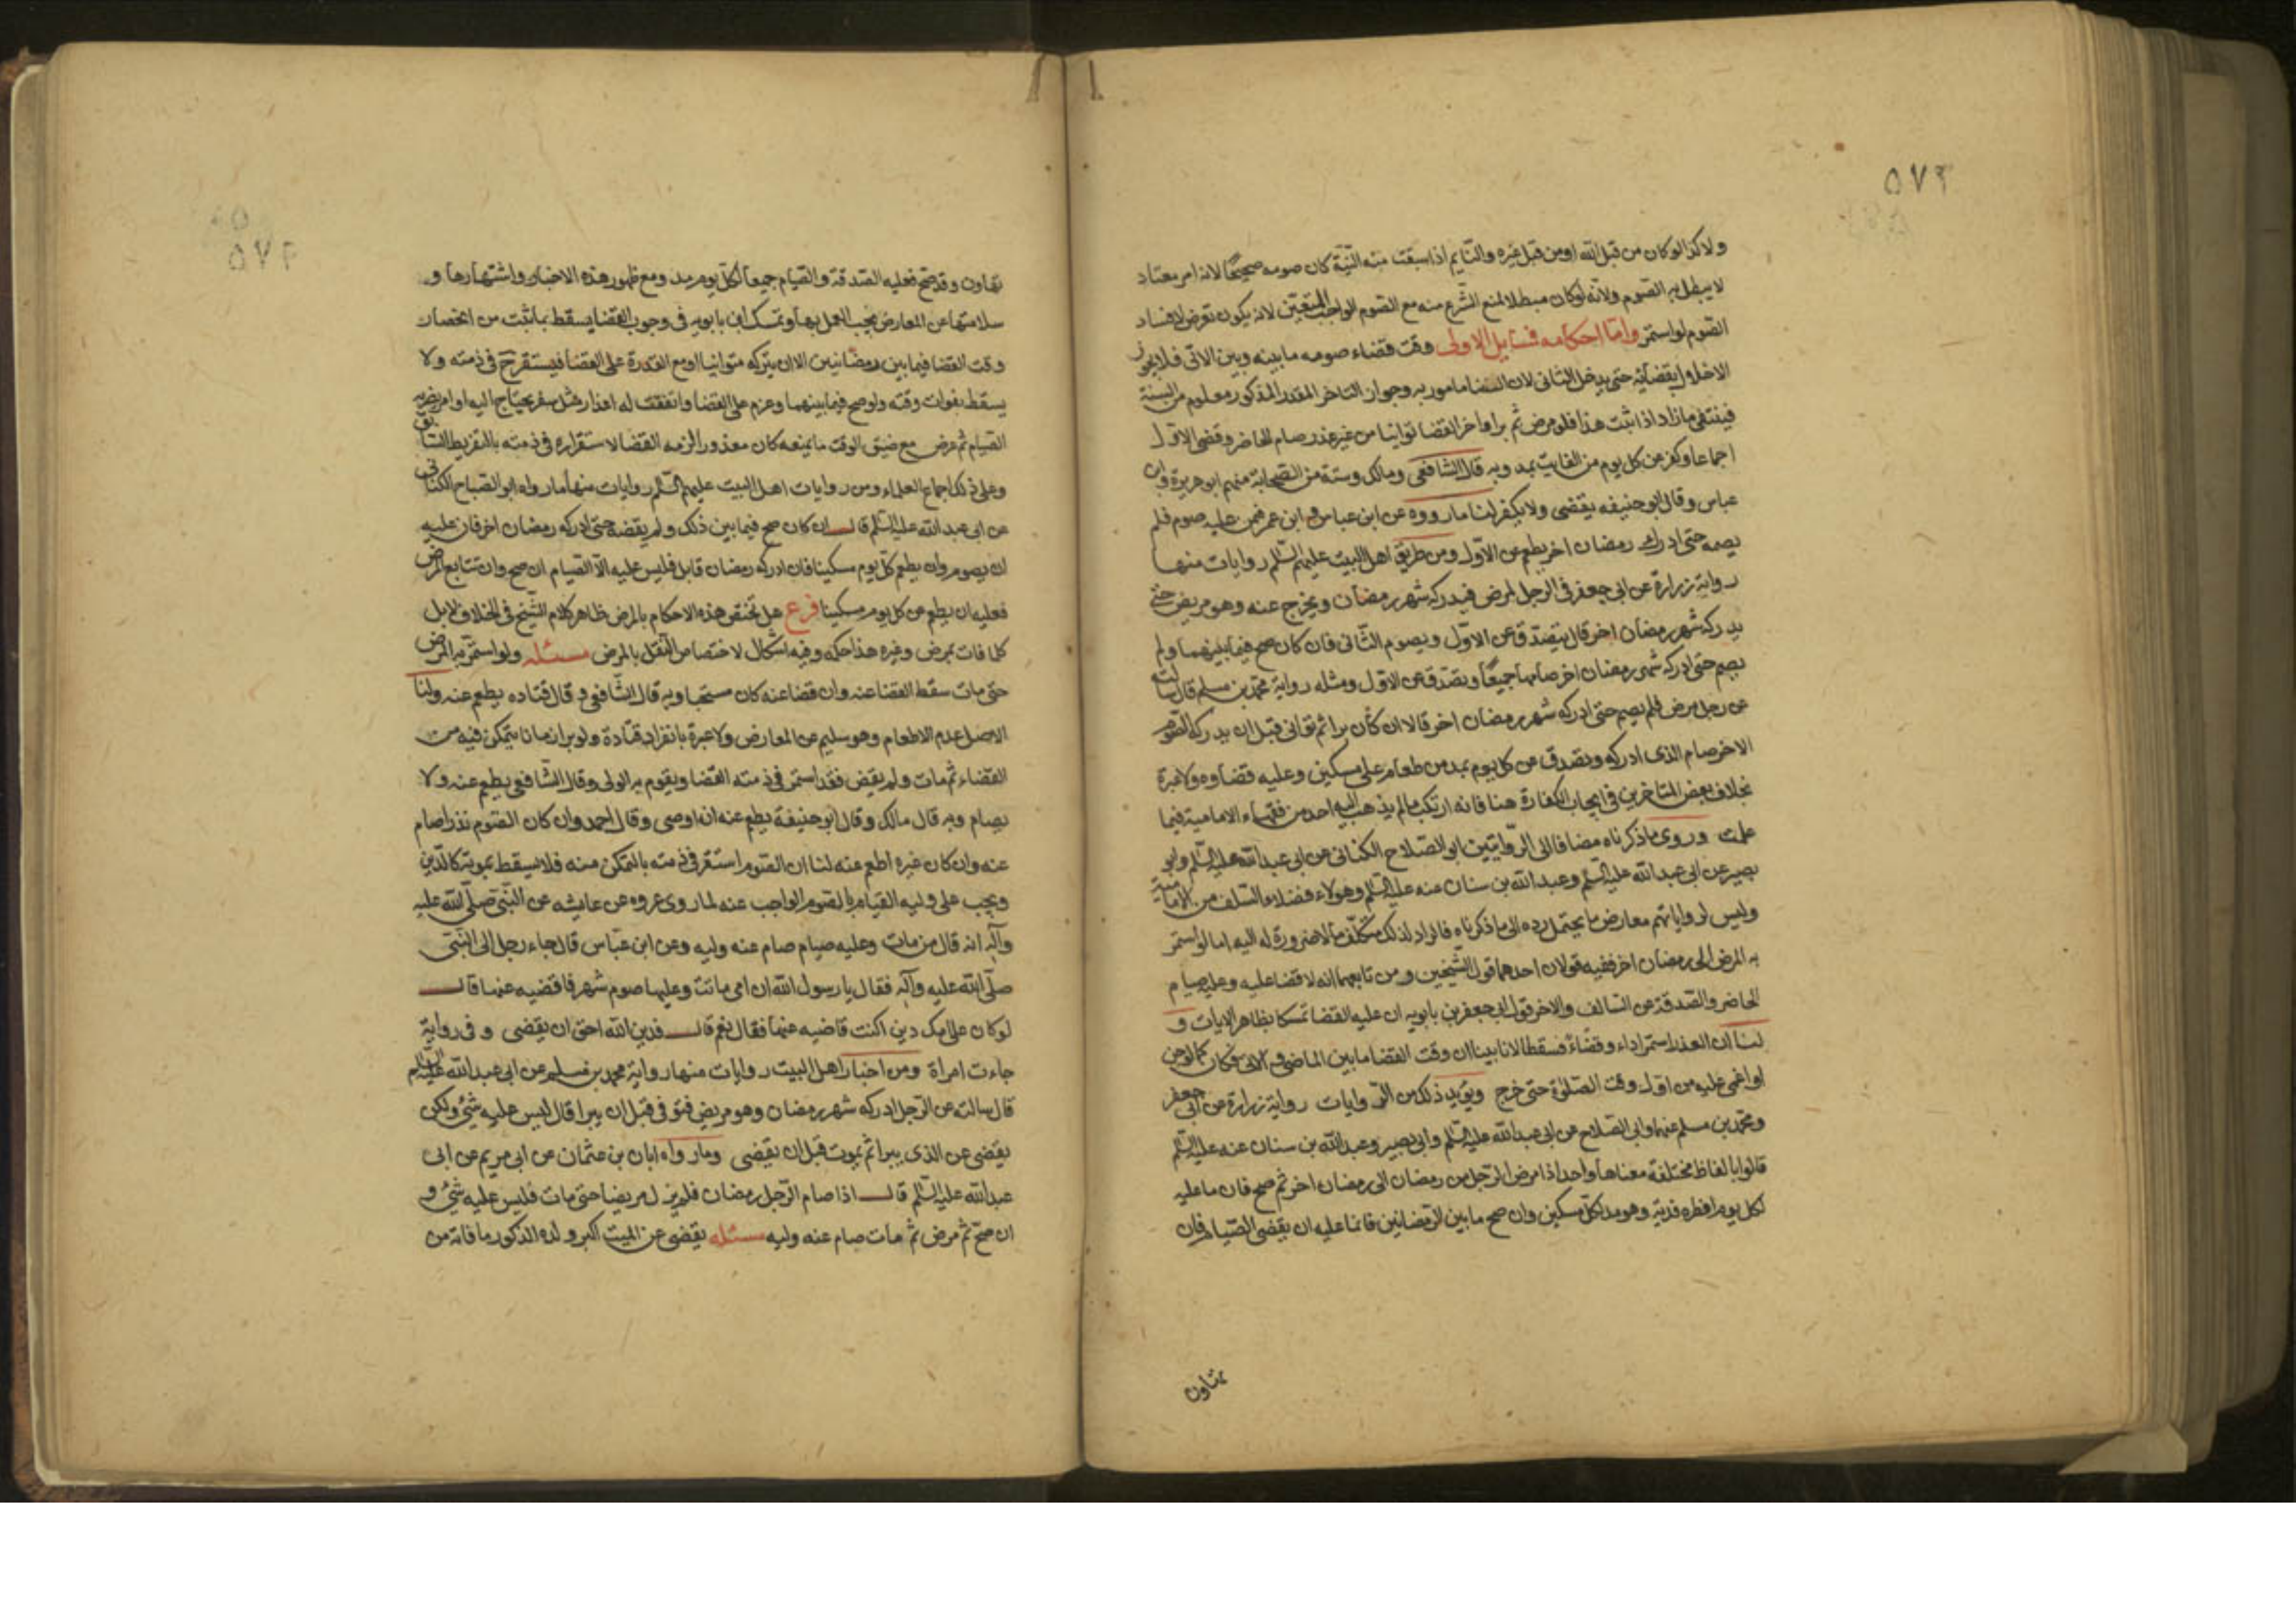 ٥٧٣
ولا كذا لو كان من قبل الله او من قبل غيره والنايم اذا سبقت منه النية كان صومه صحيحًا لانه امر معتاد
لا يبطل به الصوم ولانه لو كان مبطلا لمنع الشرع منه مع الصوم الواجب المتعين لانه يكون تعرض لافساد
الصوم لو استمر واما احكامه فمسايل الاولى وقت قضاء صومه ما بينه وبين الاتى فلا يجوز
الاخلال بقضائه حتى يدخل الثانى لان القضا مامور به وجواز التاخر المقدر المذكور معلوم من السنة
فينتفى ما زاد اذا ثبت هذا فلو مرض ثم برا واخر القضا توانيا من غير عذر صام الحاضر وقضى الاول
اجماعا وكفر عن كل يوم من الفايت بمد وبه قال الشافعى ومالك وستة من الصحابة منهم ابو هريرة وابن
عباس وقال ابو حنيفه يقضى ولا يكفر لنا ما رووه عن ابن عباس وابن عمر فمن عليه صوم فلم
يصمه حتى ادرك رمضان اخر يطعم عن الاول ومن طريق اهل البيت عليهم السلم روايات منها
رواية زرارة عن ابى جعفر فى الرجل لمرض فيدركه شهر رمضان ويخرج عنه وهو مريض حتى
يدركه شهر رمضان اخر قال يتصدق عن الاول ويصوم الثانى فان كان صح فيما بينهما ولم
يصم حتى ادركه شهر رمضان اخر صامهما جميعًا وتصدق عن الاول ومثله رواية محمد بن مسلم قال سالته
عن رجل مرض فلم يصم حتى ادركه شهر رمضان اخر قالا ان كان برا ثم توانى قبل ان يدركه الصوم
الاخر صام الذى ادركه وتصدق عن كل يوم بمد من طعام على مسكين وعليه قضاوه ولا عبرة
بخلاف بعض المتاخرين فى ايجاب الكفارة هنا فانه ارتكب ما لم يذهب اليه احد من فقهاء الامامية فيما
علمت وروى ما ذكرناه مضافا الى الروايتين ابو الصلاح الكنانى عن ابى عبد الله عليه السلم وابو
بصير عن ابى عبد الله عليه السلم وعبد الله بن سنان عنه عليه السلم وهولاء فضلاء السلف من الامامية
وليس لرواياتهم معارض ما يحتمل رده الى ما ذكرناه فالراد لذلك متكلف ما لا ضرورة له اليه اما لو استمر
به المرض الى رمضان اخر ففيه قولان احدهما قول الشيخين ومن تابعهما انه لا قضا عليه وعليه صيام
الحاضر والصدقة عن السالف والاخر قول ابى جعفر بن بابويه ان عليه القضا تمسكا بظاهر الايات و
لنا ان العذر استمر اداء وقضاءً فسقطا لانا بينا ان وقت القضا ما بين الماضى والاتى فكان كما لو جن
او اغمى عليه من اول وقت الصلوة حتى خرج ويؤيد ذلك من الروايات رواية زرارة عن ابى جعفر
ومحمد بن مسلم عنهما وابى الصلاح عن ابى عبد الله عليه السلم وابى بصير وعبد الله بن سنان عنه عليه السلم
قالوا بالفاظ مختلفة معناها واحد اذا مرض الرجل من رمضان الى رمضان اخر ثم صح فان ما عليه
لكل يوم افطره فدية وهو مد لكل مسكين وان صح ما بين الرمضانين فانما عليه ان يقضى الصيام فان
تهاون
٥٧٤
تهاون وقد صح فعليه الصدقة والصيام جميعًا لكل يوم مد ومع ظهور هذه الاخبار واشتهارها و
سلامتها عن المعارض يجب العمل بها وتمسك ابن بابويه فى وجوب القضا يسقط بما ثبت من انحصار
وقت القضا فيما بين رمضانين الا ان يتركه متوانيا او مع القدرة على القضا فيستقر ح فى ذمته ولا
يسقط بفوات وقته ولو صح فيما بينهما وعزم على القضا واتفقت له اعذار مثل سفر يحتاج اليه او امر يضر به
القيام ثم مرض مع ضيق الوقت ما يمنعه كان معذورا لزمه القضا لاستقراره فى ذمته بالتفريط السابق
وعلى ذلك اجماع العلماء ومن روايات اهل البيت عليهم السلم روايات منها ما رواه ابو الصباح الكنانى
عن ابى عبد الله عليه السلم قال ان كان صح فيما بين ذلك ولم يقضه حتى ادركه رمضان اخر فان عليه
ان يصوم وان يطعم كل يوم مسكينا فان ادركه رمضان قابل فليس عليه الا الصيام ان صح وان تتابع المرض
فعليه ان يطعم عن كل يوم مسكينا فرع هل تختص هذه الاحكام بالمرض ظاهر كلام الشيخ فى الخلاف لا بل
كلما فات بمرض وغيره هذا حكمه وفيه اشكال لاختصاص النقل بالمرض مسئله ولو استمر به المرض
حتى مات سقط القضا عنه وان قضا عنه كان مستحبا وبه قال الشافعى وقال قتاده يطعم عنه ولنا
الاصل عدم الاطعام وهو سليم عن المعارض ولا عبرة بانفراد قتادة ولو برا زمانا يتمكن فيه من
القضاء ثم مات ولم يقض فقد استمر فى ذمته القضا ويقوم به الولى وقال الشافعى يطعم عنه ولا
يصام وبه قال مالك وقال ابو حنيفة يطعم عنه ان اوصى وقال احمد وان كان الصوم نذرا صام
عنه وان كان غيره اطعم عنه لنا ان الصوم استقر فى ذمته بالتمكن منه فلا يسقط بموته كالدين
ويجب على وليه القيام بالصوم الواجب عنه لما روى عروه عن عايشه عن النبى صلى الله عليه
وآله انه قال من مات وعليه صيام صام عنه وليه وعن ابن عباس قال جاء رجل الى النبى
صلى الله عليه وآله فقال يا رسول الله ان امى ماتت وعليها صوم شهر فاقضيه عنها قال
لو كان على امك دين اكنت قاضيه عنها فقال نعم قال فدين الله احق ان يقضى وفى رواية
جاءت امراة ومن اخبار اهل البيت روايات منها رواية محمد بن مسلم عن ابى عبد الله عليه السلم
قال سالته عن الرجل ادركه شهر رمضان وهو مريض فتوفى قبل ان يبرا قال ليس عليه شئ ولكن
يقضى عن الذى يبرا ثم يموت قبل ان يقضى وما رواه ابان بن عثمان عن ابى مريم عن ابى
عبد الله عليه السلم قال اذا صام الرجل رمضان فلم يزل مريضا حتى مات فليس عليه شئ و
ان صح ثم مرض ثم مات صام عنه وليه مسئله يقضى عن الميت اكبر ولده الذكور ما فاته من